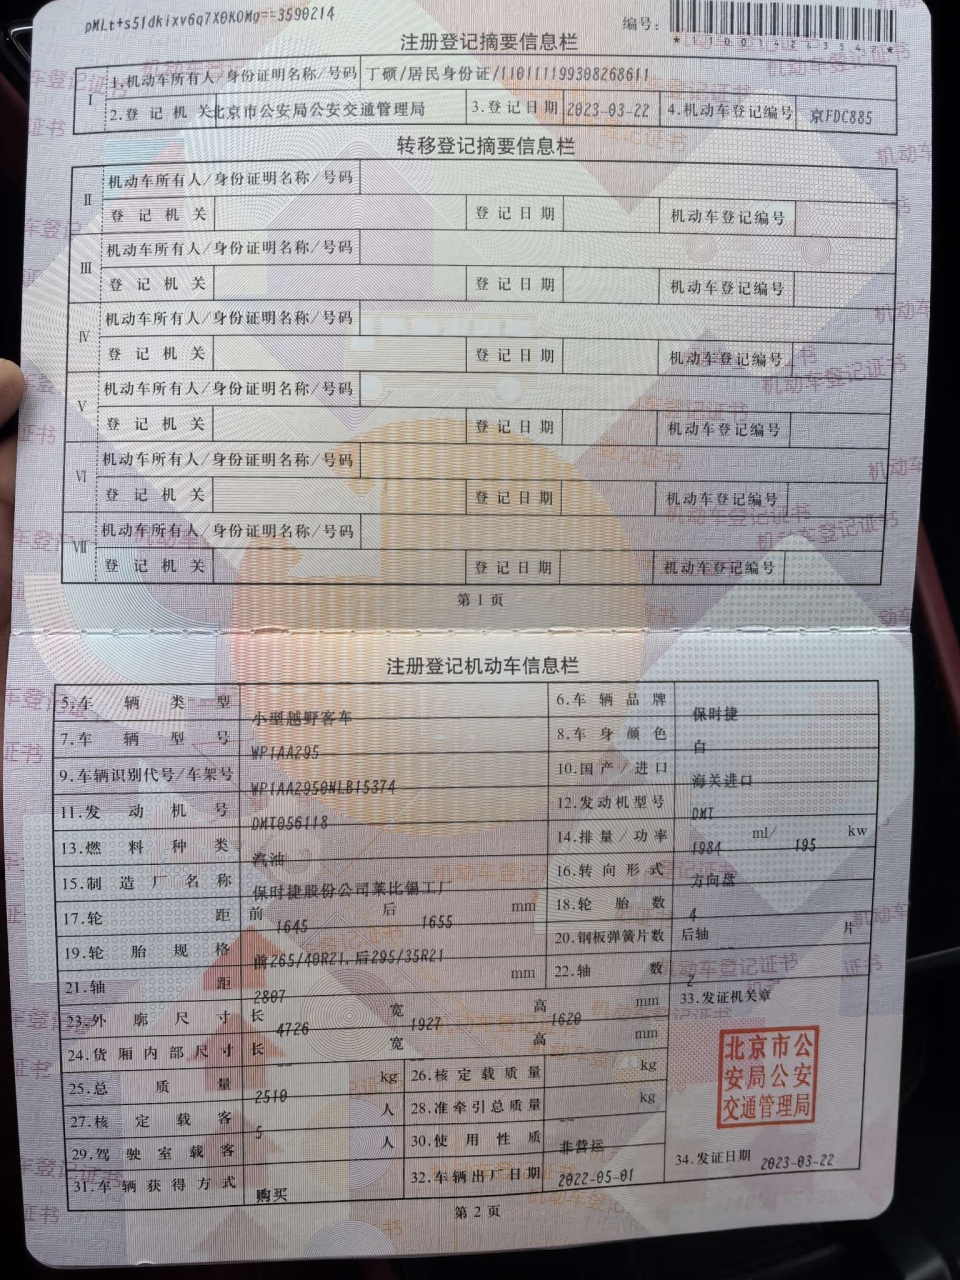 pMLt+s51dkixv6q7X0KOMg==3590214
编号:
注册登记摘要信息栏
I
1.机动车所有人/身份证明名称/号码 丁硕/居民身份证/110111199308268611
2.登记机关 北京市公安局公安交通管理局 3.登记日期 2023-03-22 4.机动车登记编号 京FDC885
转移登记摘要信息栏
II 机动车所有人/身份证明名称/号码
登记机关 登记日期 机动车登记编号
III 机动车所有人/身份证明名称/号码
登记机关 登记日期 机动车登记编号
IV 机动车所有人/身份证明名称/号码
登记机关 登记日期 机动车登记编号
V 机动车所有人/身份证明名称/号码
登记机关 登记日期 机动车登记编号
VI 机动车所有人/身份证明名称/号码
登记机关 登记日期 机动车登记编号
VII 机动车所有人/身份证明名称/号码
登记机关 登记日期 机动车登记编号
第1页
注册登记机动车信息栏
5.车辆类型 小型越野客车 6.车辆品牌 保时捷
7.车辆型号 WP1AA295 8.车身颜色 白
9.车辆识别代号/车架号 WP1AA2950NLB15374 10.国产/进口 海关进口
11.发动机号 DMT056118 12.发动机型号 DMT
13.燃料种类 汽油 14.排量/功率 1984 ml/ 195 kw
15.制造厂名称 保时捷股份公司莱比锡工厂 16.转向形式 方向盘
17.轮距 前 1645 后 1655 mm 18.轮胎数 4
19.轮胎规格 前265/40R21,后295/35R21 20.钢板弹簧片数 后轴 -- 片
21.轴距 2807 mm 22.轴数 2
23.外廓尺寸 长 4726 宽 1927 高 1620 mm 33.发证机关章
24.货厢内部尺寸 长 -- 宽 -- 高 -- mm
25.总质量 2510 kg 26.核定载质量 -- kg
27.核定载客 5 人 28.准牵引总质量 -- kg
29.驾驶室载客 -- 人 30.使用性质 非营运
31.车辆获得方式 购买 32.车辆出厂日期 2022-05-01 34.发证日期 2023-03-22
北京市公
安局公安
交通管理局
第2页